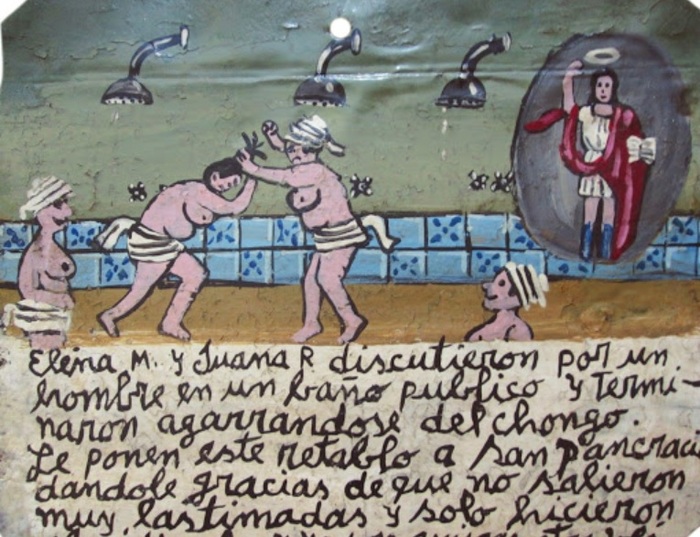 Elena M. y Juana R discutieron por un
hombre en un baño publico y termi-
naron agarrandose del chongo.
Le ponen este retablo a San Pancracio
dandole gracias de que no salieron
muy lastimadas y solo hicieron